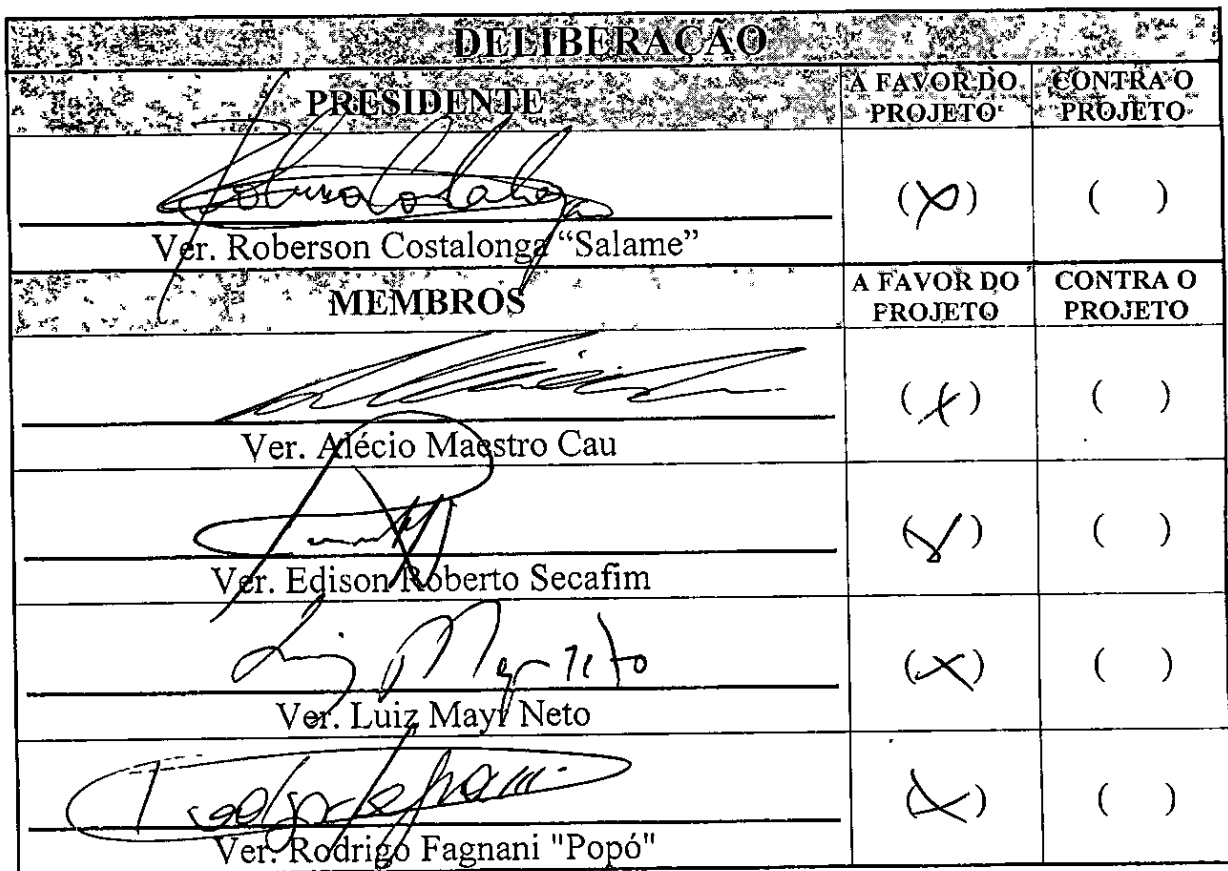 DELIBERAÇÃO
PRESIDENTE
A FAVOR DO PROJETO
CONTRA O PROJETO
(X) ( )
Ver. Roberson Costalonga “Salame”
MEMBROS
A FAVOR DO PROJETO
CONTRA O PROJETO
(X) ( )
Ver. Alécio Maestro Cau
(X) ( )
Ver. Edison Roberto Secafim
(X) ( )
Ver. Luiz Mayr Neto
(X) ( )
Ver. Rodrigo Fagnani "Popó"